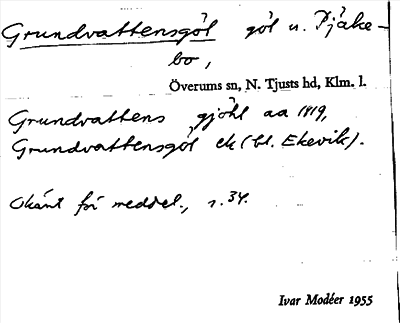 Grundvattensgöl göl n. Pjäke-
bo,
Överums sn, N. Tjusts hd, Klm. l.
Grundvattens gjöhl aa 1819,
Grundvattensgöl ek (bl. Ekevik).
Okänt för meddel., s. 34.
Ivar Modéer 1955